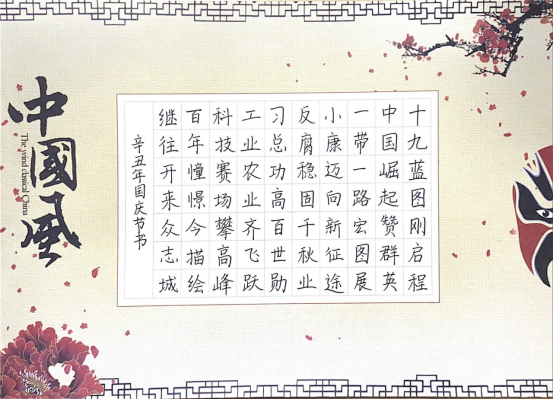 十九蓝图刚启程
中国崛起赞群英
一带一路宏图展
小康迈向新征途
反腐稳固千秋业
习总功高百世勋
工业农业齐飞跃
科技赛场攀高峰
百年憧憬今描绘
继往开来众志城
辛丑年国庆节书
中國風
The wind classical China